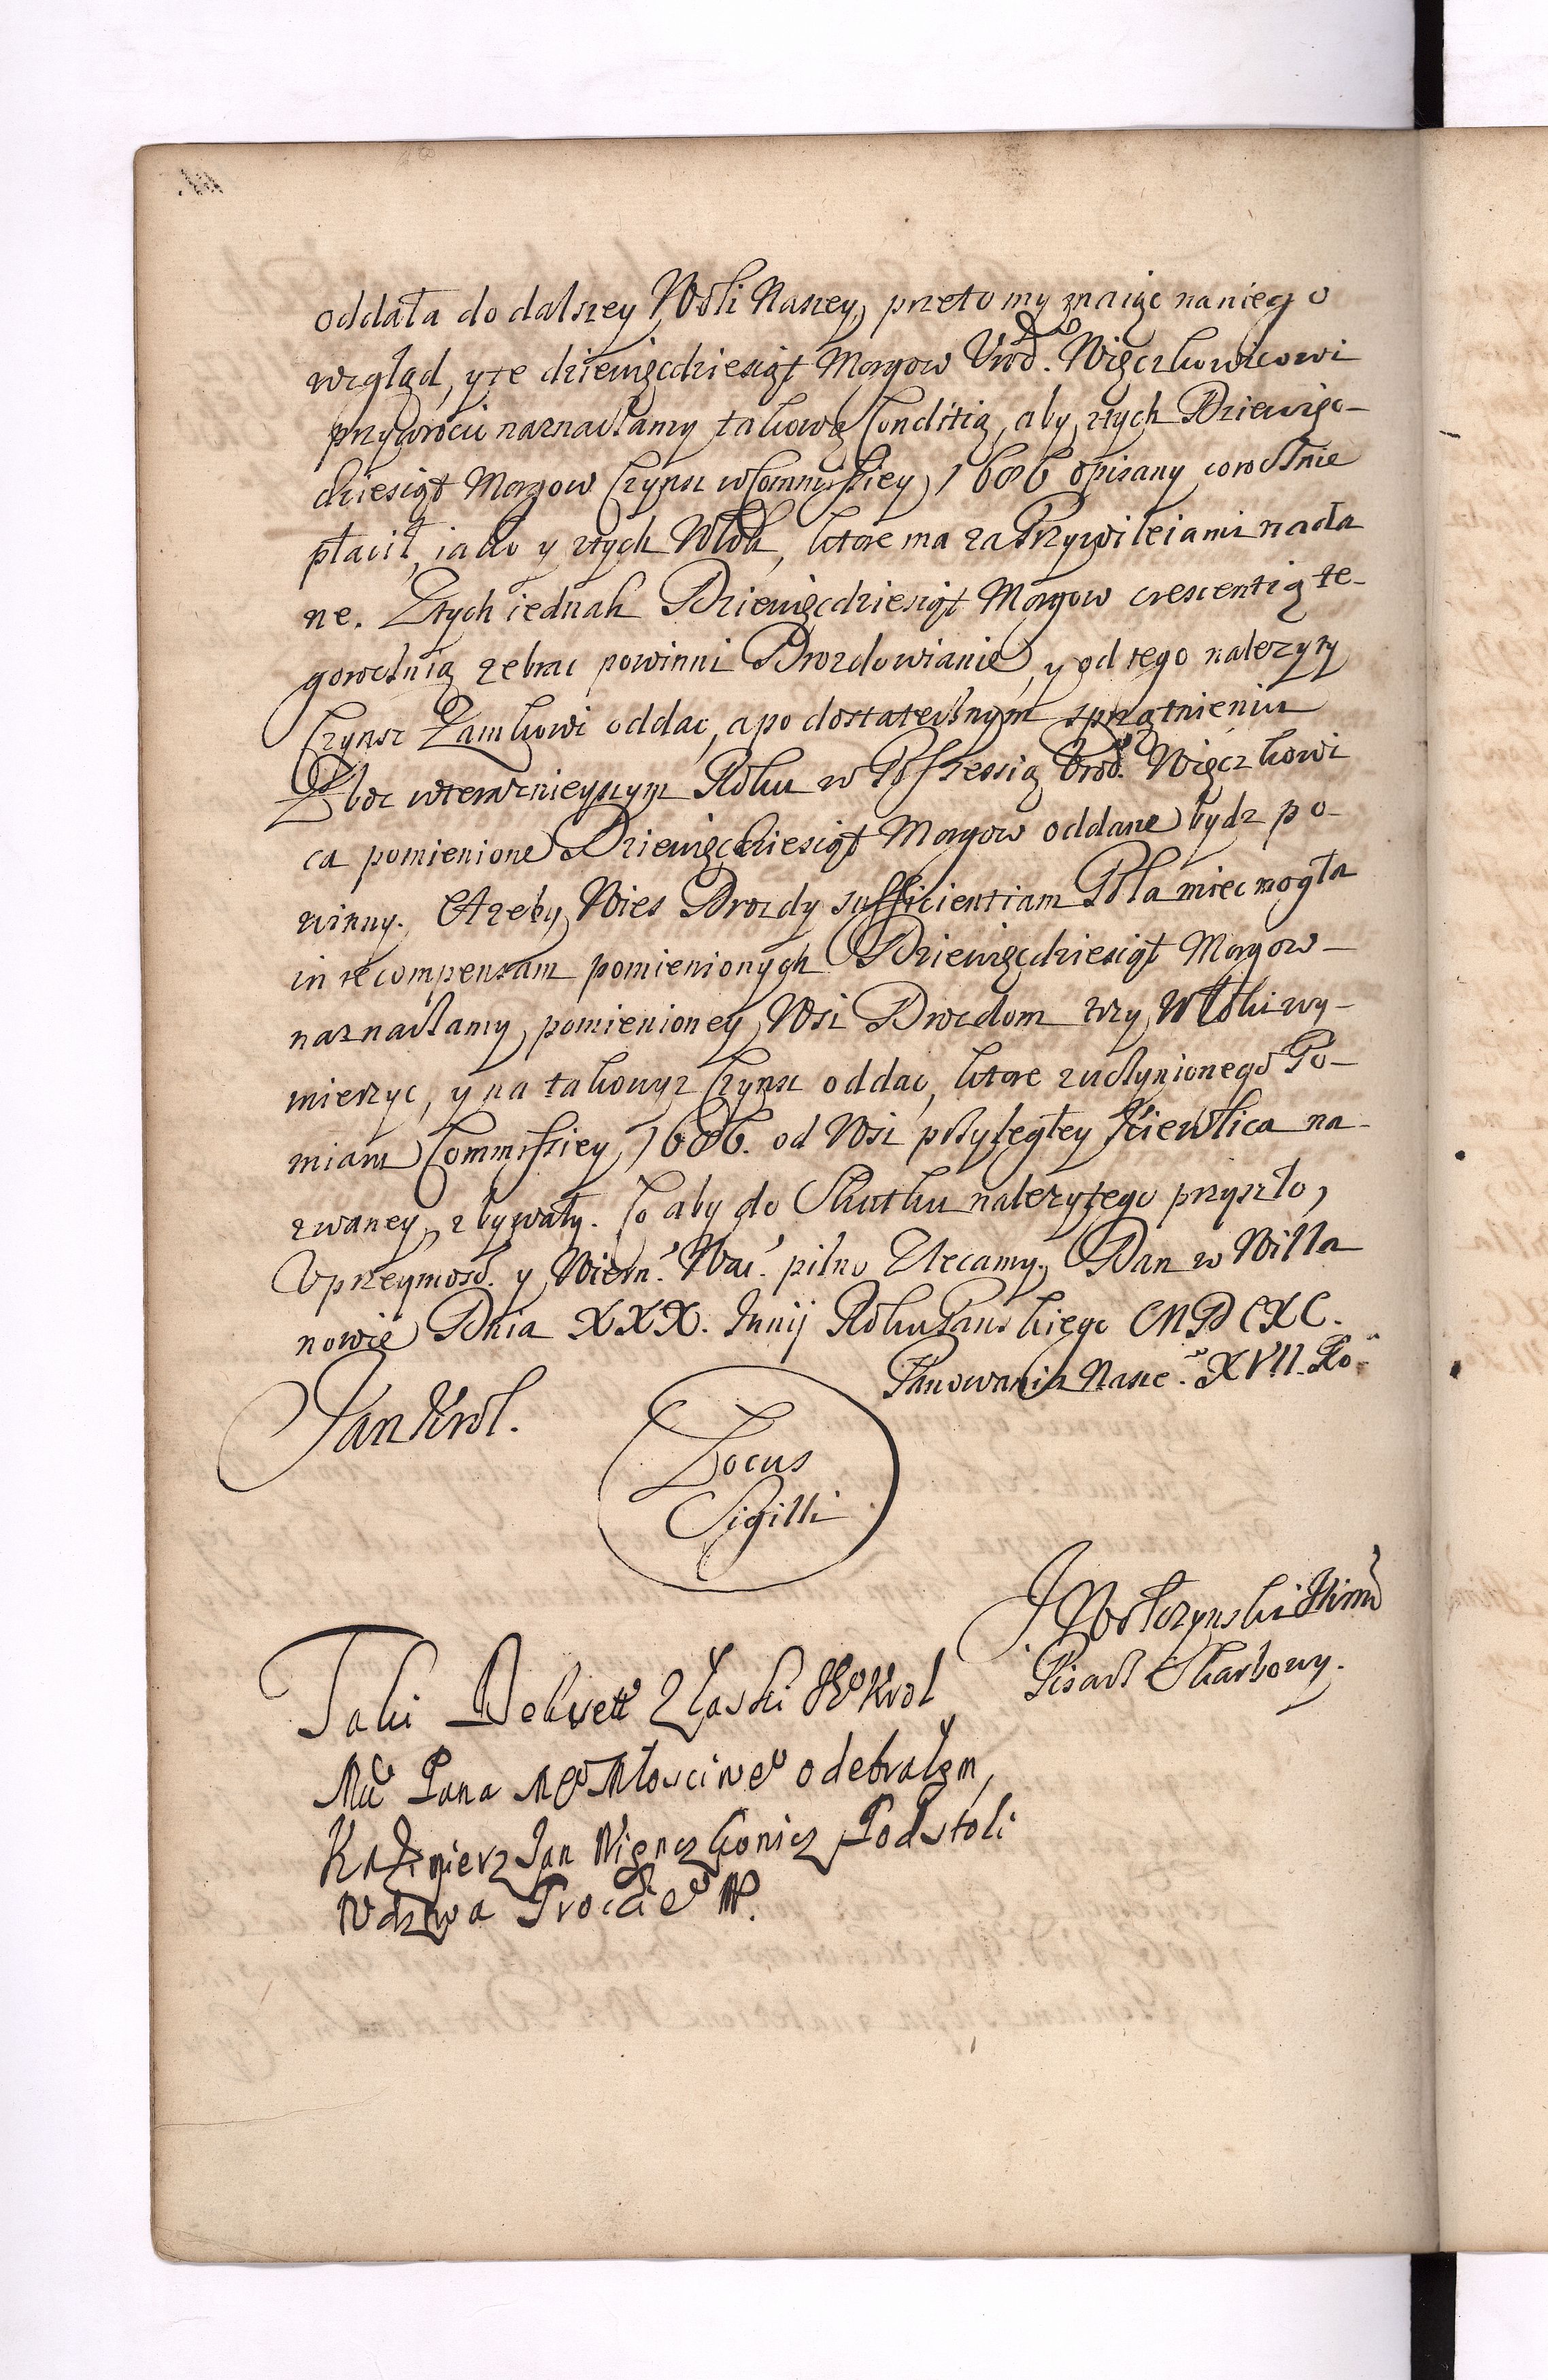 oddała do dalszey Woli Naszey, przeto my maiąc na niego
wzgląd, y te dziewięcdziesiąt Morgow Urod. Więczkowicowi
przywrocic naznaczamy takową Conditią, aby z tych Dziewięc-
dziesiąt Morgow Czynsz w Commissiey 1686 opisany corocznie
płacił, iako y z tych Włok, ktore ma za Przywileiami nada
ne. Z tych iednak Dziewięcdziesiąt Morgow crescentią te-
goroczną zebrac powinni Drozdowianie, y od tego nalezyty
Czynsz Zamkowi oddac, a po dostatecznym sprzątnieniu
Zboz w teraznieyszym Roku w Possessią Urod. Więczkowi
ca pomienione Dziewięcdziesiąt Morgow oddane bydz po-
winny. A zeby Wies Drozdy sufficientiam Pola miec mogła
in recompensam pomienionych Dziewięcdziesiąt Morgow-
naznaczamy pomienioney Wsi Drozdom trzy Włoki wy-
mierzyc, y na takowyz Czynsz oddac, ktore z uczynionego Po-
miaru Commissiey 1686. od Wsi przyległey Kiewlica na-
zwaney, zbywały. Co aby do Skutku nalezytego przyszło,
Uprzeymosc. y Wiern. Wasz. pilno Zlecamy. Dan w Willa
nowie Dnia XXX. Junij Roku Pańskiego MDCXC.
Panowania Nasze. XVII. Ro.
Jan Krol.
Locus
Sigilli
J Wołczynski
Pisarz Skarbowy.
Taki Dekrett z łaski Je Krol
Mci Pana Me Młosciwe odebrałem,
Kazimierz Jan Więnczkowicz Podstoli
Wdztwa Trockie MP.